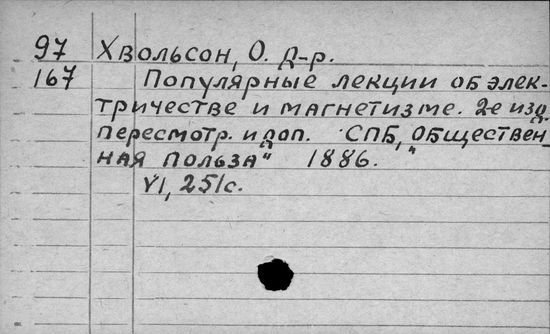 97 Хвольсон, О. Д-р.
167 Популярные лекции об элек-
тричестве и магнетизме. 2-е изд.
пересмотр. и доп. СПБ, "Обществен-
ная польза" 1886.
VI, 251с.